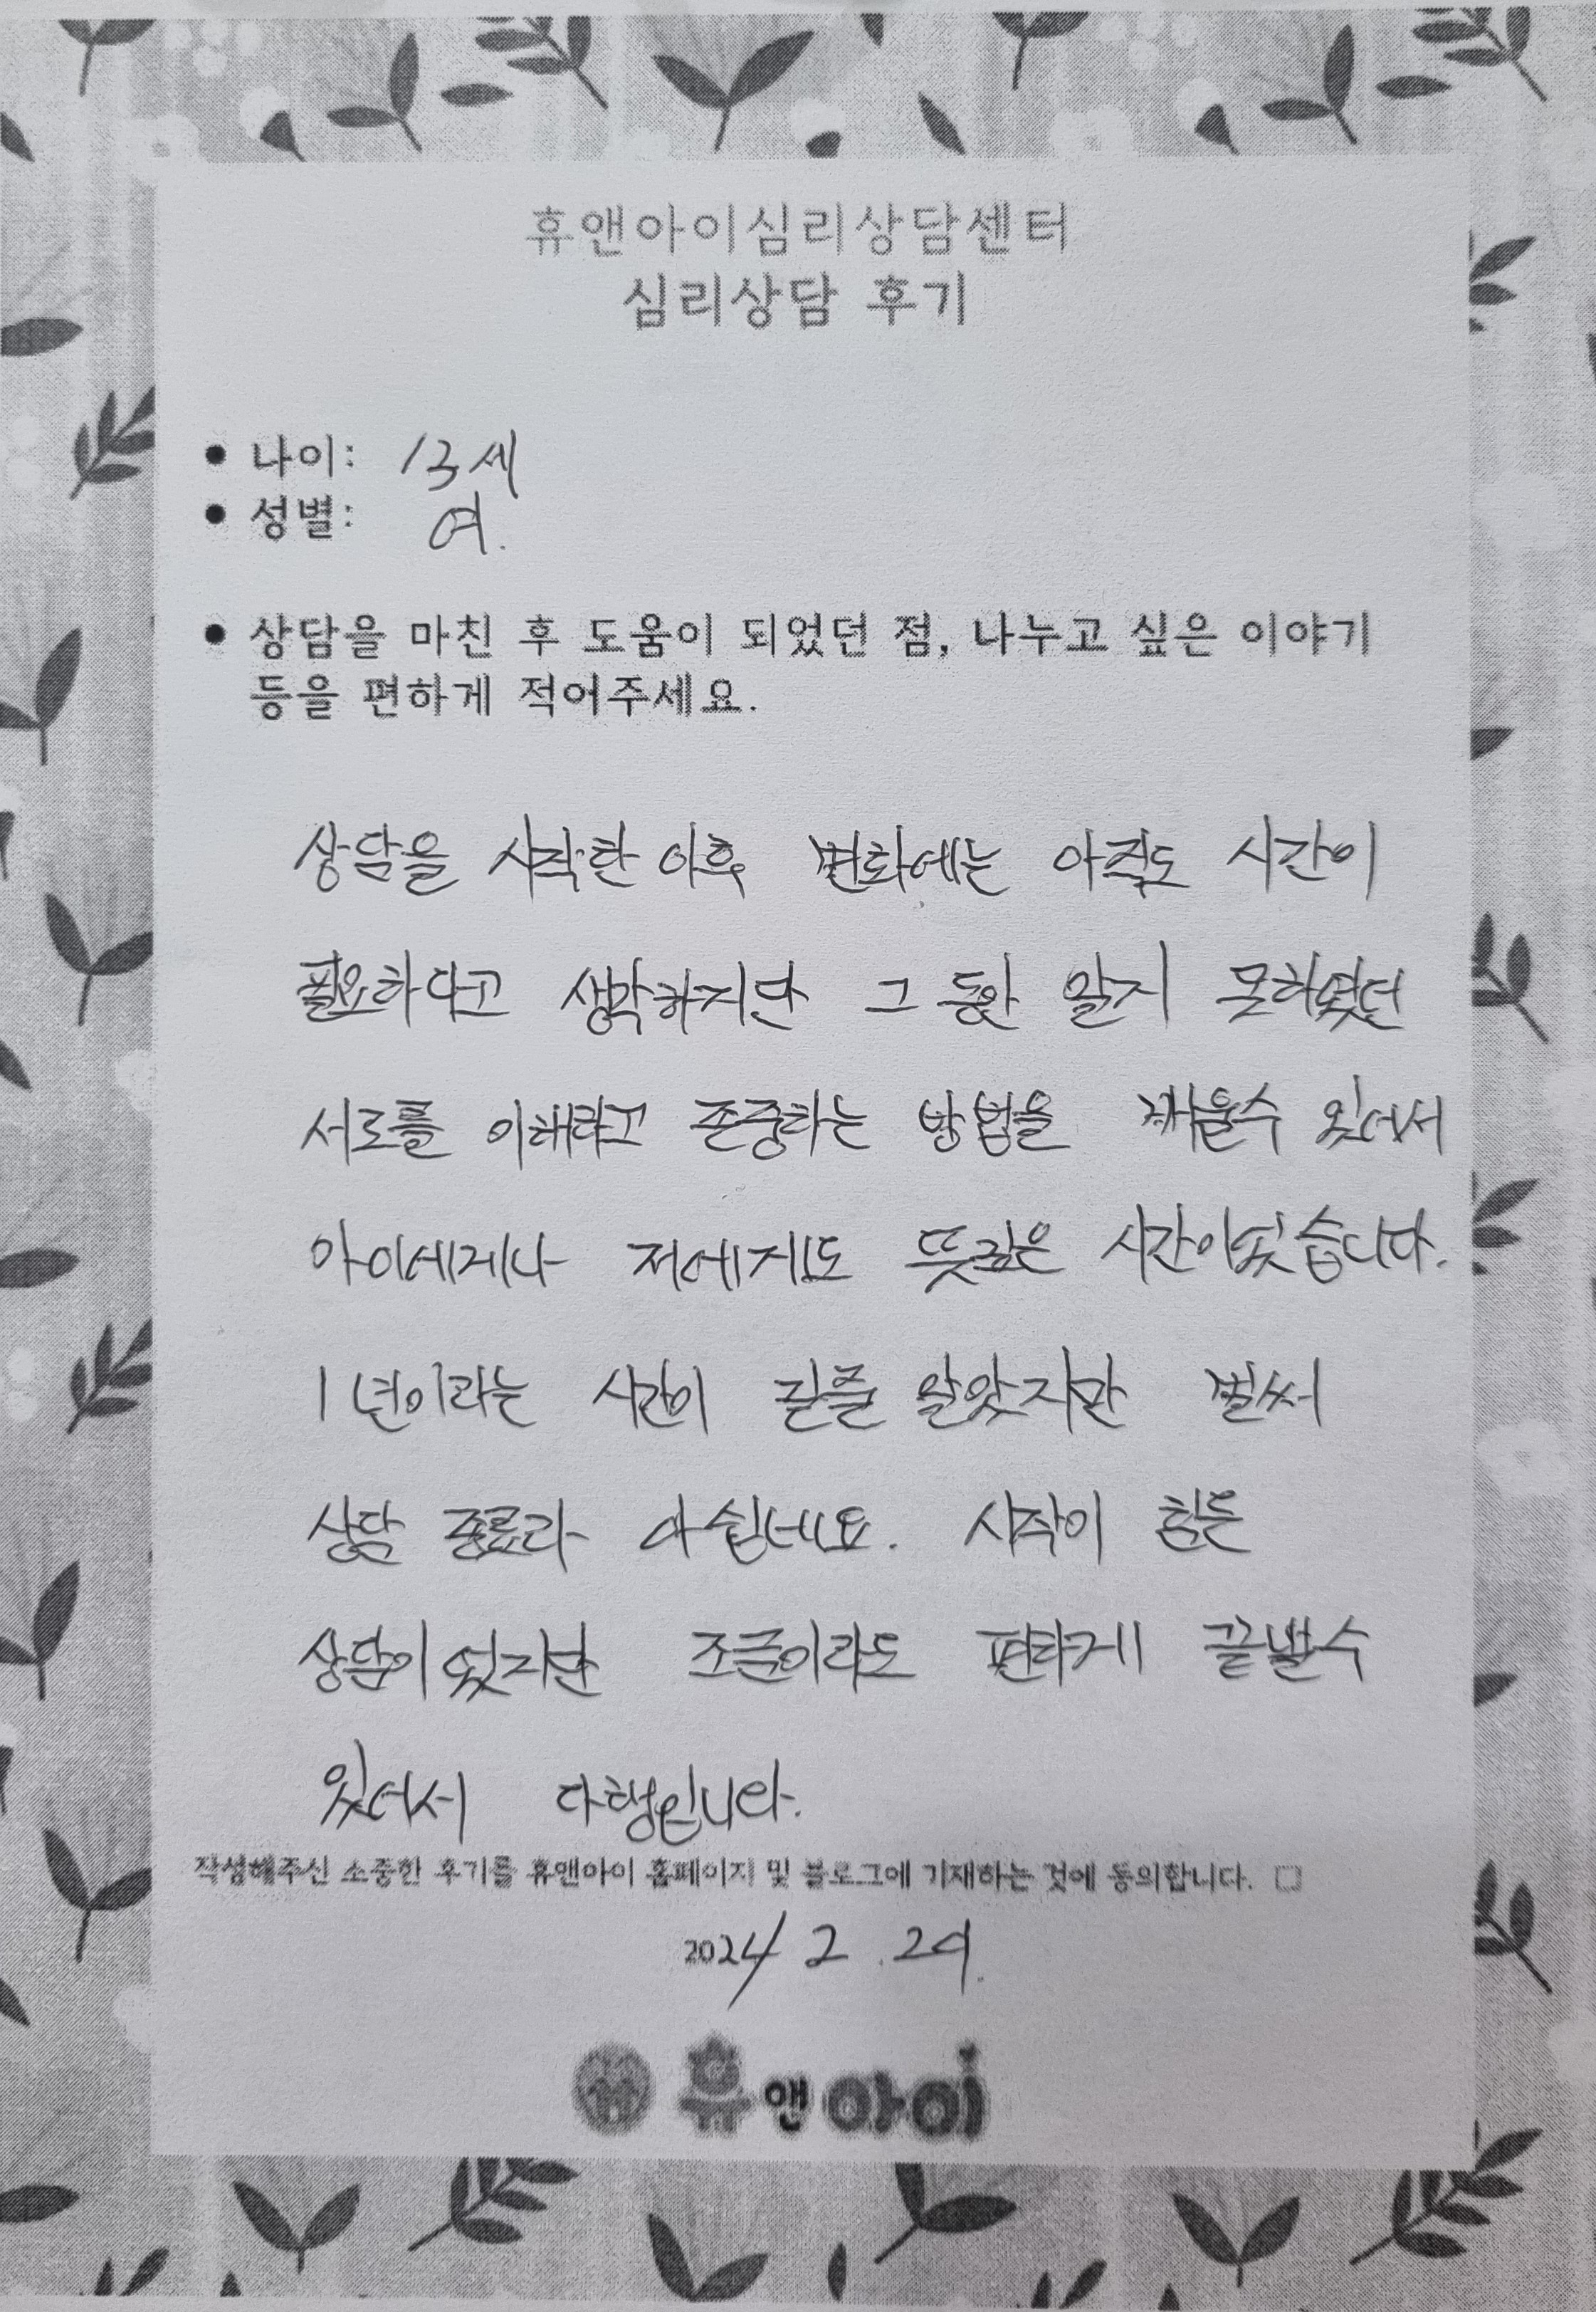 휴앤아이심리상담센터
심리상담 후기
● 나이: 13세
● 성별: 여.
● 상담을 마친 후 도움이 되었던 점, 나누고 싶은 이야기
등을 편하게 적어주세요.
상담을 시작한 이후 변화에는 아직도 시간이
필요하다고 생각하지만 그 동안 알지 못하였던
서로를 이해하고 존중하는 방법을 배울수 있어서
아이에게나 저에게도 뜻깊은 시간이었습니다.
1년이라는 시간이 길줄 알았지만 벌써
상담 종료라 아쉽네요. 시작이 힘든
상담이였지만 조금이라도 편하게 끝낼수
있어서 다행입니다.
작성해주신 소중한 후기를 휴앤아이 홈페이지 및 블로그에 기재하는 것에 동의합니다. □
2024/ 2 . 29.
휴앤아이